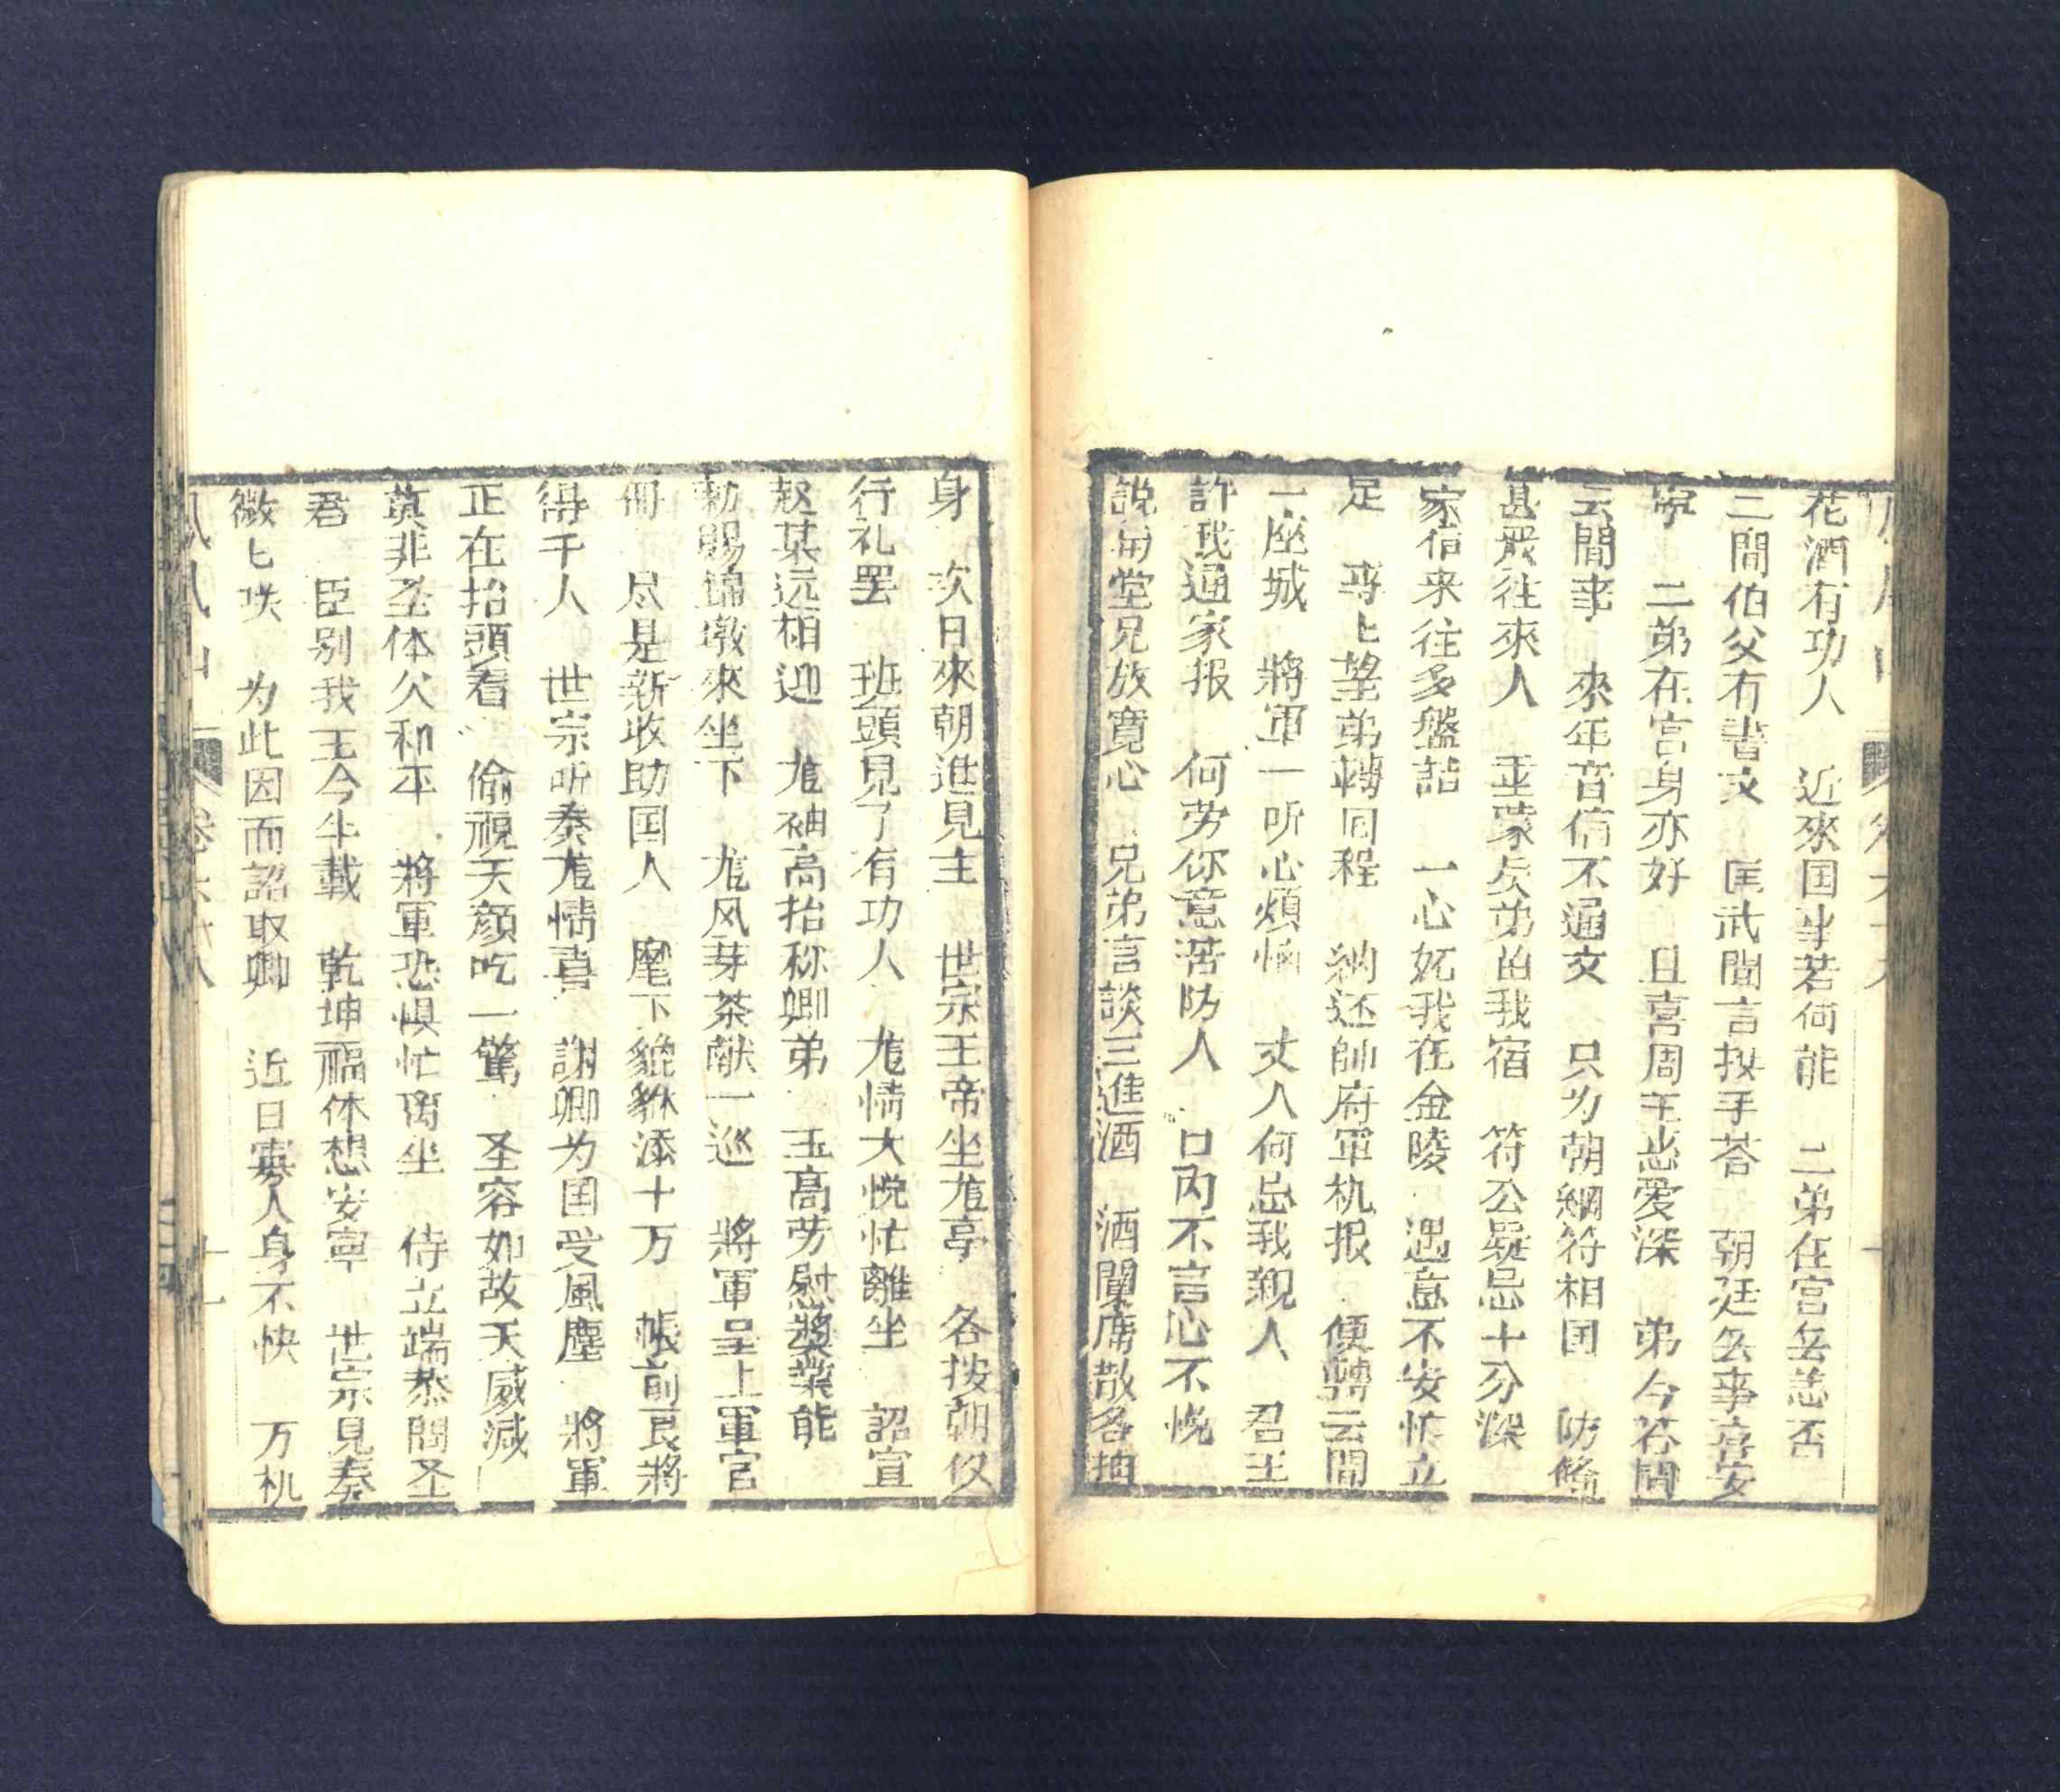 花酒有功人　近來国事若何能　二弟在宫㒵恙否
二間伯父有書文　匡武聞言按手荅　朝廷㒵事喜安
寧　二弟在宫身亦好　且喜周主恣愛深　弟今若問
云間事　來年音信不通文　只为朝綱符相国　防俻
甚嚴往來人　正蒙矣弟的我宿　符公疑忌十分深
家信来往多盤詰　一心妬我在金陵　遇意不安怅立
足　專匕望弟轉回程　納还帥府軍机报　便轉云間
一座城　將軍一听心煩惱　丈人何忌我親人　君王
許我通家报　何劳你意苦防人　口內不言心不悦
說与堂兄放寬心　兄弟言談三進酒　酒闌席散各抽
身　次日來朝進見主　世宗王帝坐尨亭　各按朝仪
行礼罢　班頭見了有功人　尨情大悦忙離坐　詔宣
赵某远相迎　尨袖高抬称卿弟　玉高劳慰奬業能
勅賜錦墩來坐下　尨风芽茶献一巡　將軍呈上軍官
冊　尽是新收助国人　麾下貔貅添十万　帳前良將
得千人　世宗听奏尨情喜　謝卿为国受風塵　將軍
正在抬頭看　偷視天顔吃一驚　圣容如故天威减
莫非圣体欠和平　將軍恐惧忙离坐　侍立端恭問圣
君　臣别我王今半載　乾坤福休想安寧　世宗見奏
微匕咲　为此因而詔取卿　近日寡人身不快　万机
鳳凰山　卷六十八　十一